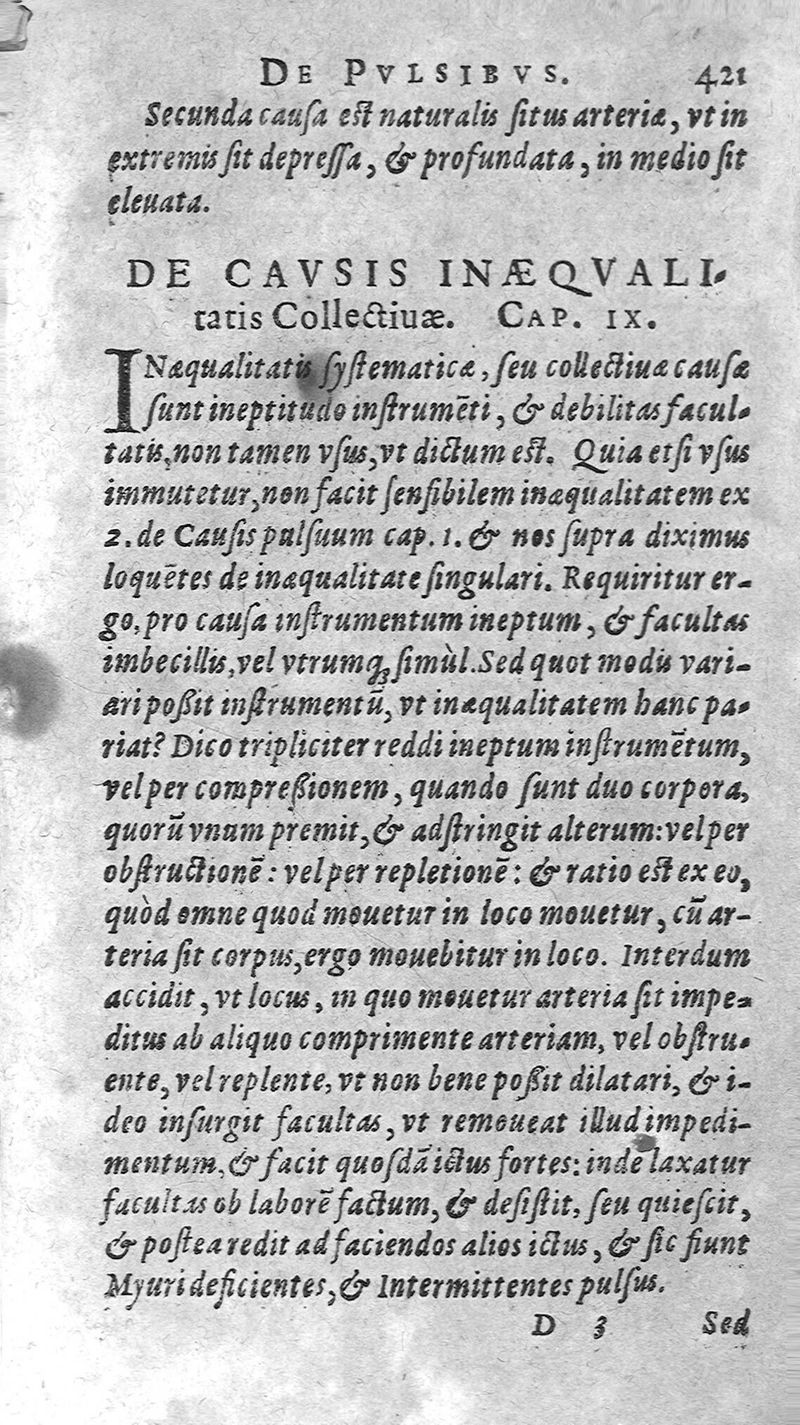 DE PVLSIBVS. 421
Secunda cauſa est naturalis ſitus arteriæ, vt in
extremis ſit depreſſa, & profundata, in medio ſit
eleuata.
DE CAVSIS INÆQVALI-
tatis Collectiuæ. CAP. IX.
INæqualitatis ſyſtematicæ, ſeu collectiuæ cauſæ
ſunt ineptitudo inſtrumēti, & debilitas facul-
tatis, non tamen vſus, vt dictum est. Quia etſi vſus
immutetur, non facit ſenſibilem inæqualitatem ex
2. de Cauſis pulſuum cap. 1. & nos ſupra diximus
loquētes de inæqualitate ſingulari. Requiritur er-
go, pro cauſa inſtrumentum ineptum, & facultas
imbecillis, vel vtrumq; ſimùl. Sed quot modis vari-
ari poßit inſtrumentū, vt inæqualitatem hanc pa-
riat? Dico tripliciter reddi ineptum inſtrumētum,
vel per compreßionem, quando ſunt duo corpora,
quorū vnum premit, & adſtringit alterum: vel per
obſtructionē: vel per repletionē: & ratio est ex eo,
quòd omne quod mouetur in loco mouetur, cū ar-
teria ſit corpus, ergo mouebitur in loco. Interdum
accidit, vt locus, in quo mouetur arteria ſit impe-
ditus ab aliquo comprimente arteriam, vel obſtru-
ente, vel replente, vt non bene poßit dilatari, & i-
deo inſurgit facultas, vt remoueat illud impedi-
mentum, & facit quoſdā ictus fortes: inde laxatur
facultas ob laborē factum, & deſiſtit, ſeu quieſcit,
& postea redit ad faciendos alios ictus, & ſic fiunt
Myuri deficientes, & Intermittentes pulſus.
D 3 Sed